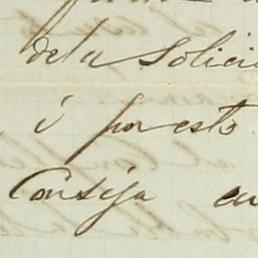 de la Solici
i por esto
Consija en